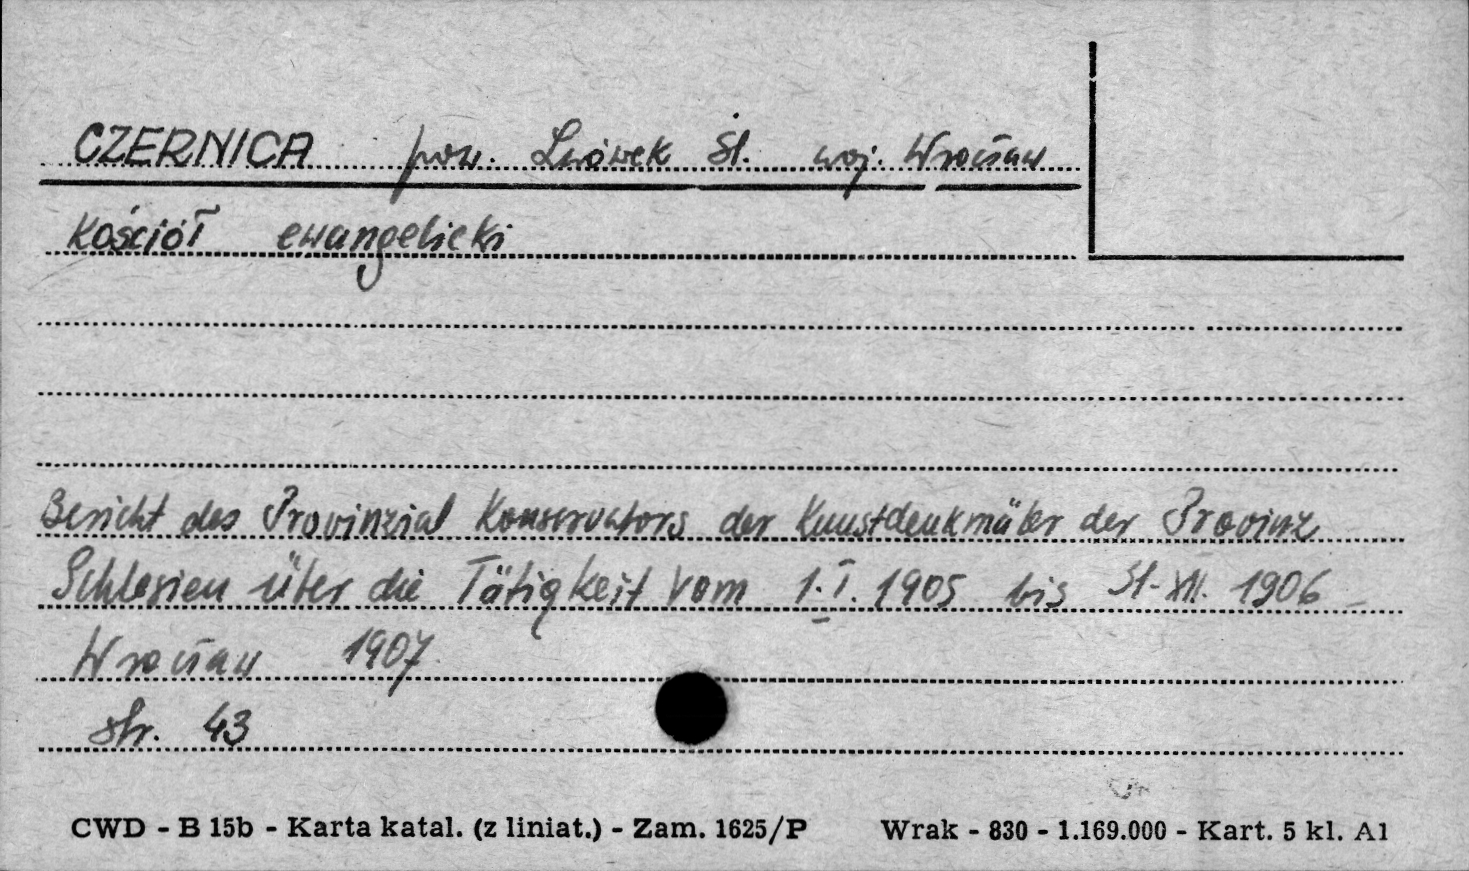 CZERNICA pow. Lwówek Śl. woj. Wrocław
Kościół ewangelicki
Bericht des Provinzial Konservators der Kunstdenkmäler der Provinz
Schlesien über die Tätigkeit vom 1.I.1905 bis 31.XII.1906
Wrocław 1907
str. 43
CWD - B 15b - Karta katal. (z liniat.) - Zam. 1625/P Wrak - 830 - 1.169.000 - Kart. 5 kl. A1